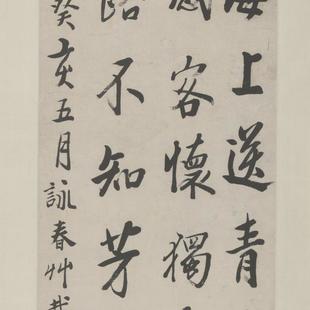 海上送青
感客懷獨
路不知芳
癸亥五月詠春艸